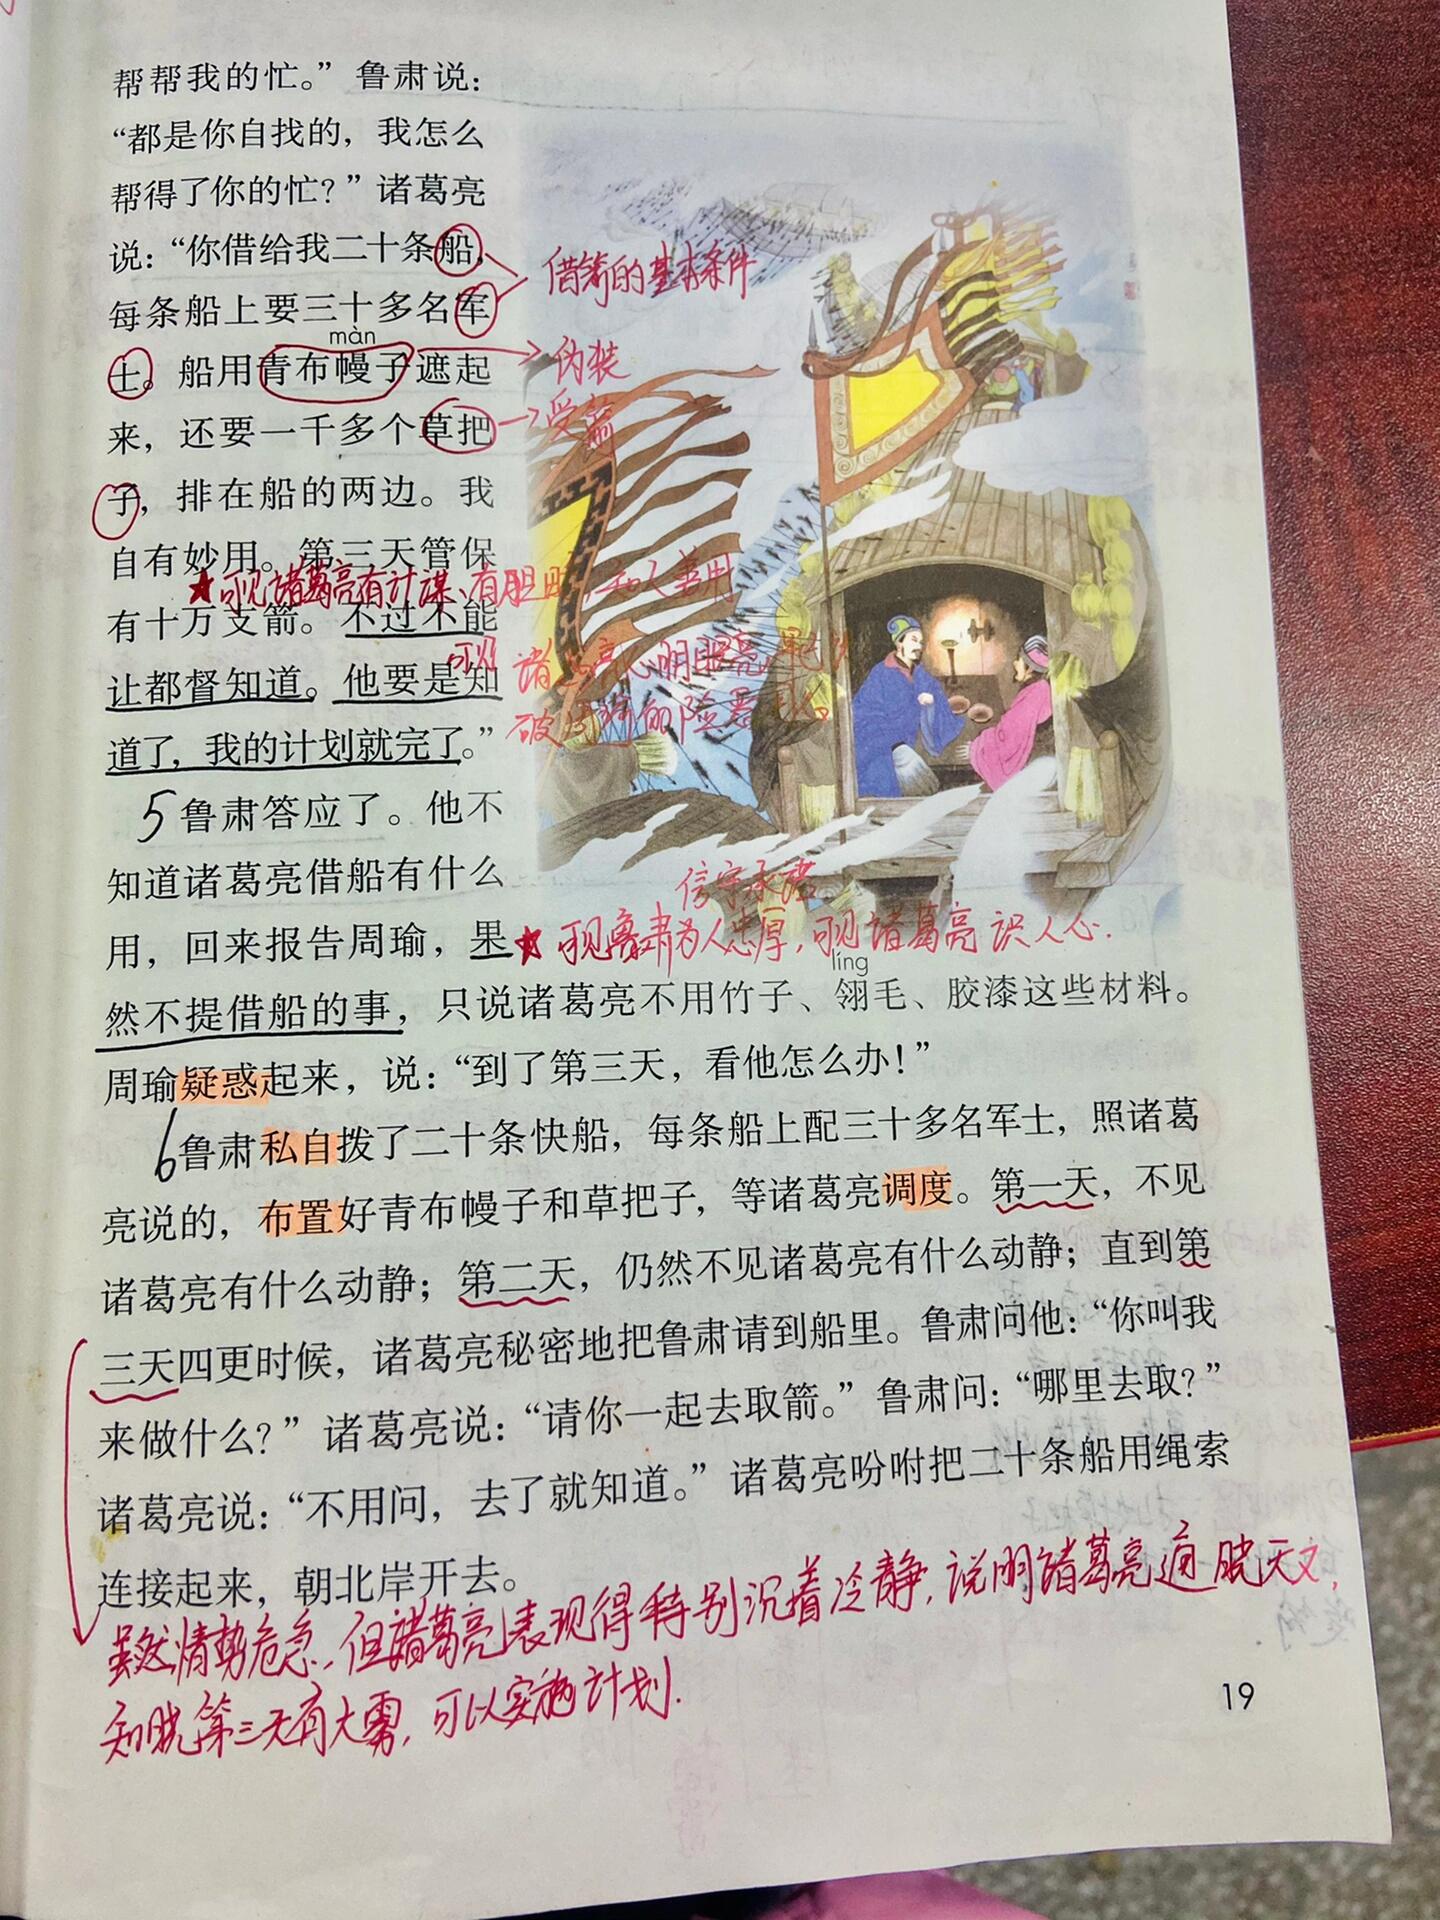 帮帮我的忙。”鲁肃说：
“都是你自找的，我怎么
帮得了你的忙？”诸葛亮
说：“你借给我二十条船，
借箭的基本条件
每条船上要三十多名军
màn
士。船用青布幔子遮起
伪装
来，还要一千多个草把
受箭
子，排在船的两边。我
自有妙用。第三天管保
★可见诸葛亮有计谋、有胆
有十万支箭。不过不能
可见诸葛亮心明眼亮
让都督知道。他要是知
破周瑜的险恶
道了，我的计划就完了。”
5鲁肃答应了。他不
知道诸葛亮借船有什么
信守承诺
用，回来报告周瑜，果
★可见鲁肃为人忠厚，可见诸葛亮识人心.
líng
然不提借船的事，只说诸葛亮不用竹子、翎毛、胶漆这些材料。
周瑜疑惑起来，说：“到了第三天，看他怎么办！”
6鲁肃私自拨了二十条快船，每条船上配三十多名军士，照诸葛
亮说的，布置好青布幔子和草把子，等诸葛亮调度。第一天，不见
诸葛亮有什么动静；第二天，仍然不见诸葛亮有什么动静；直到第
三天四更时候，诸葛亮秘密地把鲁肃请到船里。鲁肃问他：“你叫我
来做什么？”诸葛亮说：“请你一起去取箭。”鲁肃问：“哪里去取？”
诸葛亮说：“不用问，去了就知道。”诸葛亮吩咐把二十条船用绳索
连接起来，朝北岸开去。
虽然情势危急，但诸葛亮表现得特别沉着冷静，说明诸葛亮通晓天文，
知晓第三天有大雾，可以实施计划.
19